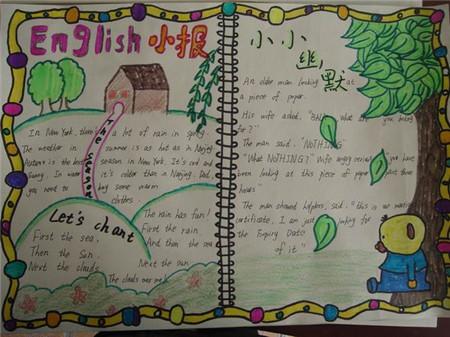 English 小报
In New York, there's a lot of rain in spring
The weather in summer is as hot as in Nanjing
Autumn is the best season in New York. It's cool and
Sunny. In winter it's colder than in Nanjing. Dad,
you need to buy some warm
clothes.
The Seasons
Let's chant
First the sea,
Then the Sun,
Next the clouds
The rain has fun!
First the rain
And then the sea
Next the sun
The clouds over me
小小幽默
An older man looking at
a piece of paper.
His wife asked, what are you
for?"
The man said, "NOTHING"
"What NOTHING?" Wife angry "we have
been looking at this piece of paper past three
hours"
The man showed said: "this is
certificate, I am just looking for
the Expiry Date
of it."